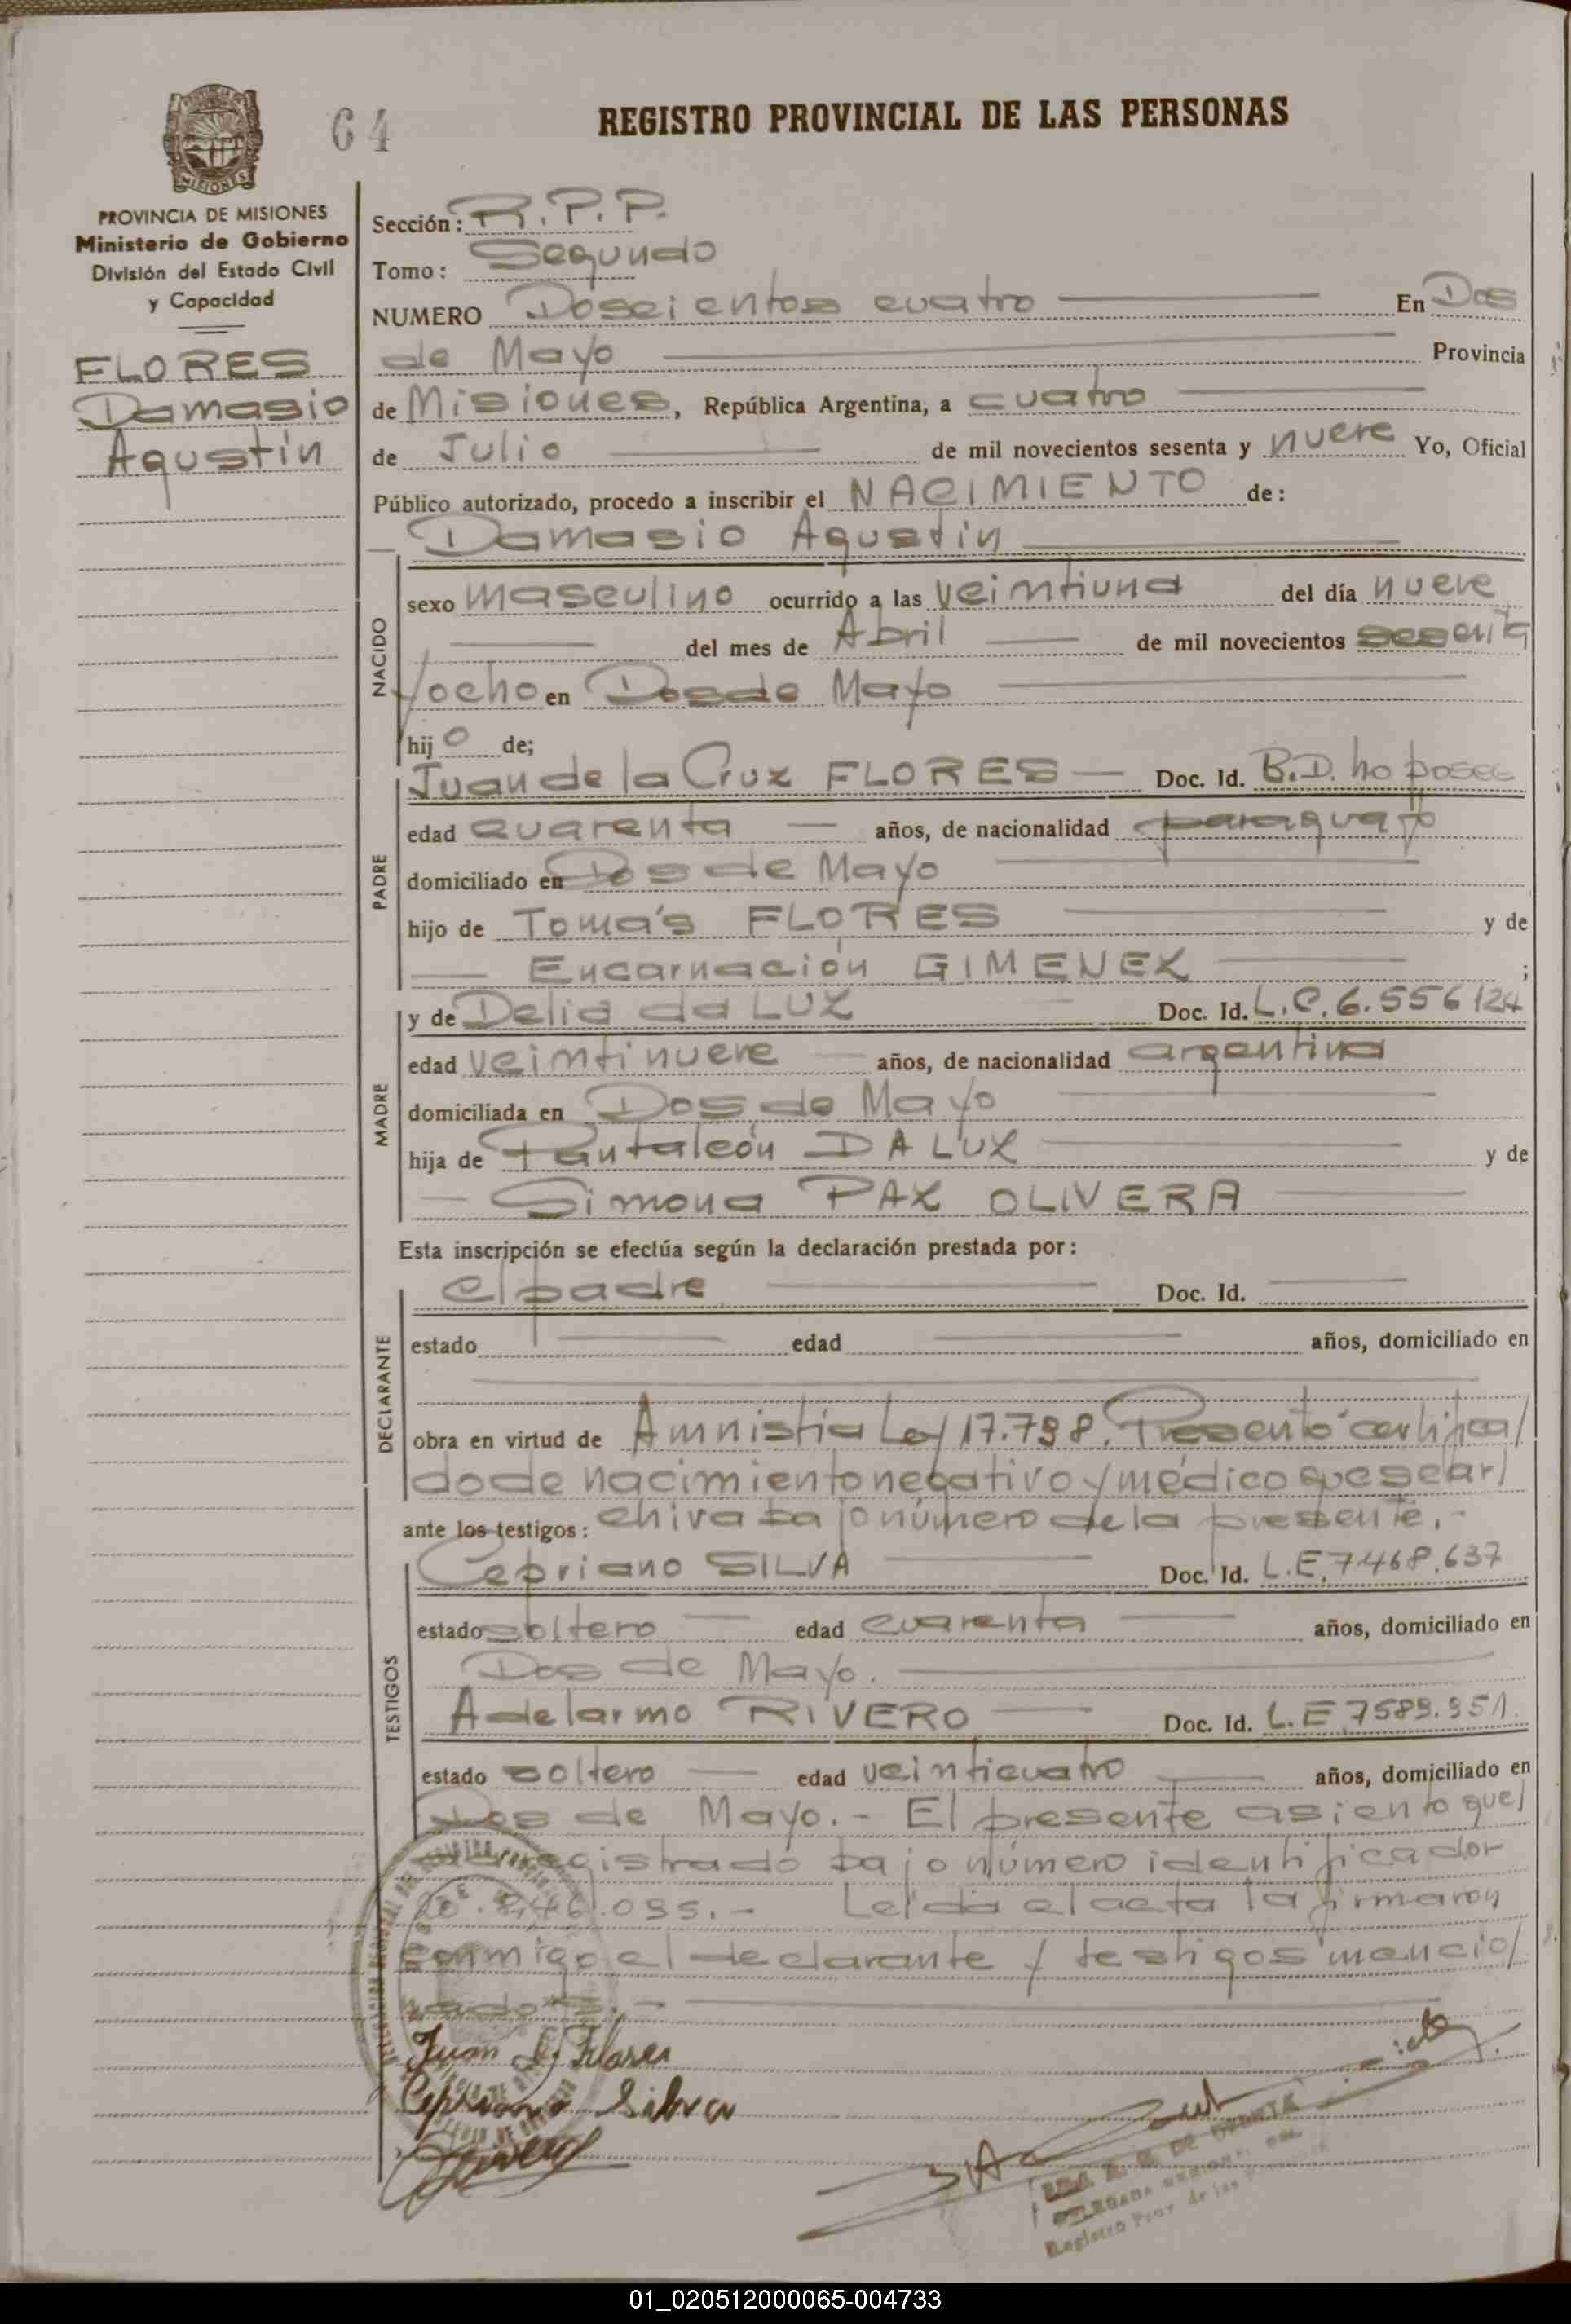 64
REGISTRO PROVINCIAL DE LAS PERSONAS
MISIONES
PROVINCIA DE MISIONES
Ministerio de Gobierno
División del Estado Civil
y Capacidad
FLORES
Damasio
Agustín
Sección: R.P.P.
Tomo: Segundo
NUMERO Doscientos cuatro En Dos
de Mayo Provincia
de Misiones, República Argentina, a cuatro
de Julio de mil novecientos sesenta y nueve Yo, Oficial
Público autorizado, procedo a inscribir el NACIMIENTO de:
Damasio Agustín
NACIDO
sexo masculino ocurrido a las veintiuna del día nueve
del mes de Abril de mil novecientos sesenta
y ocho en Dos de Mayo
hijo de;
PADRE
Juan de la Cruz FLORES Doc. Id. B.D. no posee
edad cuarenta años, de nacionalidad paraguayo
domiciliado en Dos de Mayo
hijo de Tomás FLORES y de
Encarnación GIMENEZ ;
MADRE
y de Delia da LUZ Doc. Id. L.C. 6.556124
edad veintinueve años, de nacionalidad argentina
domiciliada en Dos de Mayo
hija de Pantaleón DA LUZ y de
Simona PAZ OLIVERA
Esta inscripción se efectúa según la declaración prestada por:
DECLARANTE
el padre Doc. Id.
estado edad años, domiciliado en
obra en virtud de Amnistía Ley 17.798. Presentó certifica/
do de nacimiento negativo y médico que se ar/
ante los testigos: chiva bajo número de la presente.-
TESTIGOS
Cepriano SILVA Doc. Id. L.E. 7.468.637
estado soltero edad cuarenta años, domiciliado en
Dos de Mayo.
Adelarmo RIVERO Doc. Id. L.E 7589.951.
estado soltero edad veinticuatro años, domiciliado en
Dos de Mayo.- El presente asiento que/
registrado bajo número identificador
.846.095.- Leída el acta la firmaron
conmigo el declarante y testigos mencio/
nados.-
Juan Flores
Cepriano Silva
01_020512000065-004733